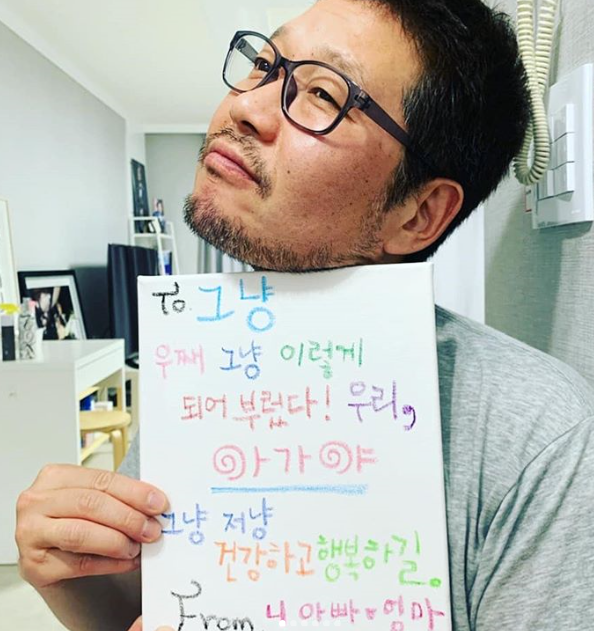 To. 그냥
우째 그냥 이렇게
되어 부렀다! 우리,
아가야
그냥 저냥
건강하고 행복하길.
From. 니 아빠♥엄마